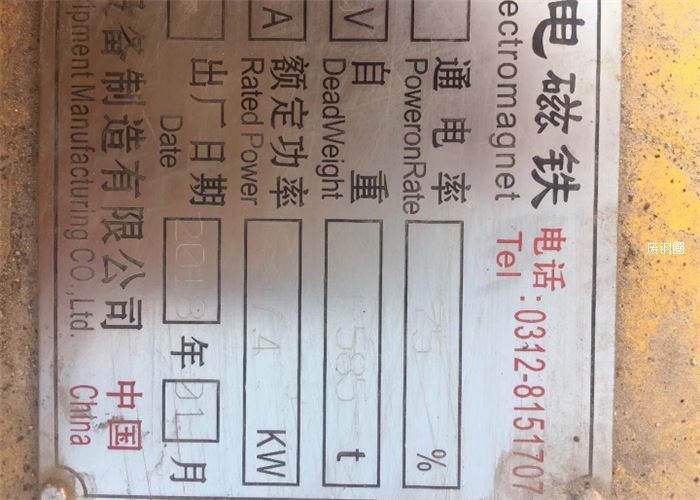 电磁铁
ectromagnet
电话:0312-8151707
Tel
通电率 75 %
PoweronRate
V 自重 t
DeadWeight
A 额定功率 KW
Rated Power
出厂日期 2018 年 01 月
Date
备制造有限公司 中国
ipment Manufacturing CO.,Ltd. China
废钢圈